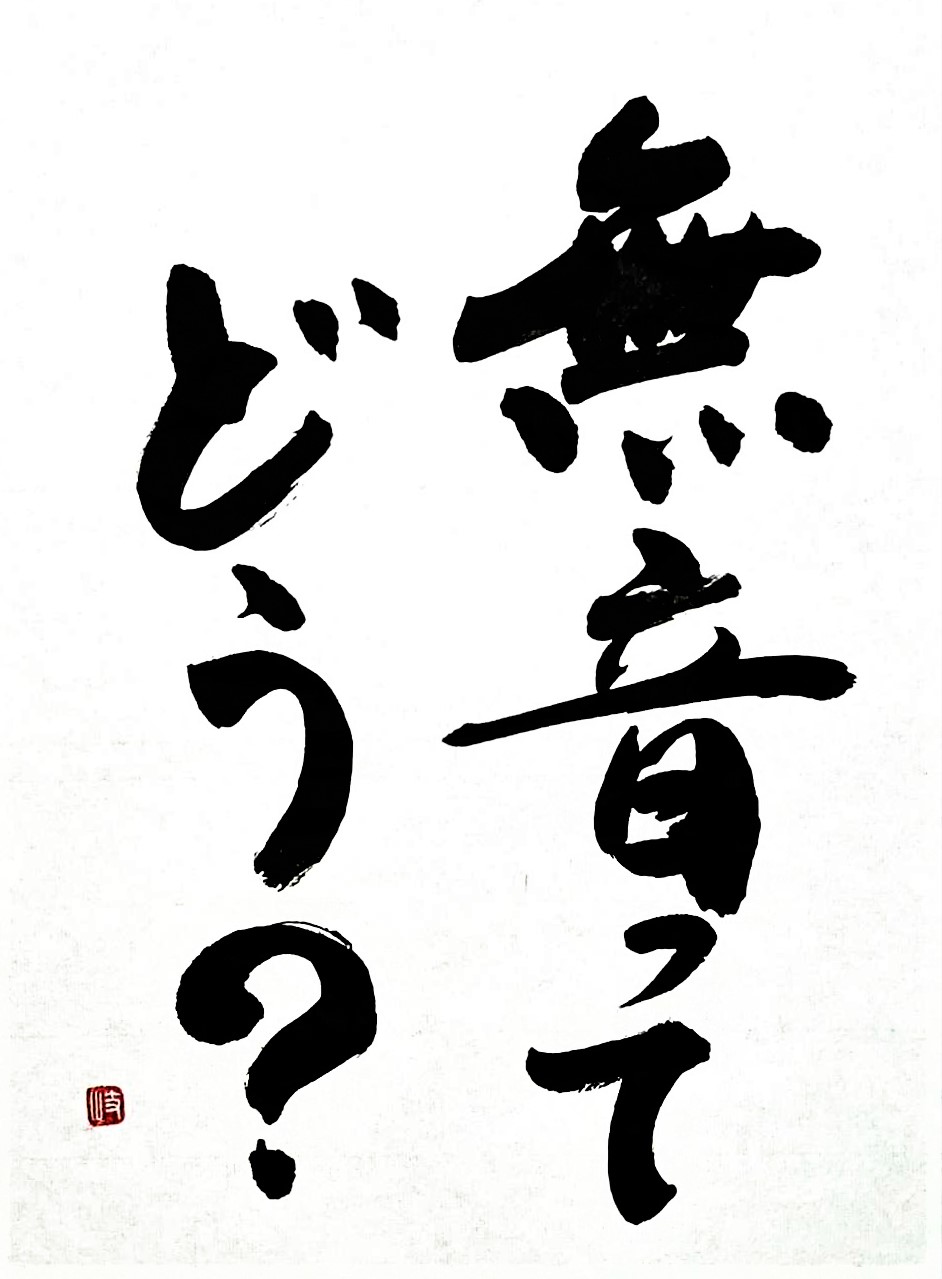 無音って
どう?